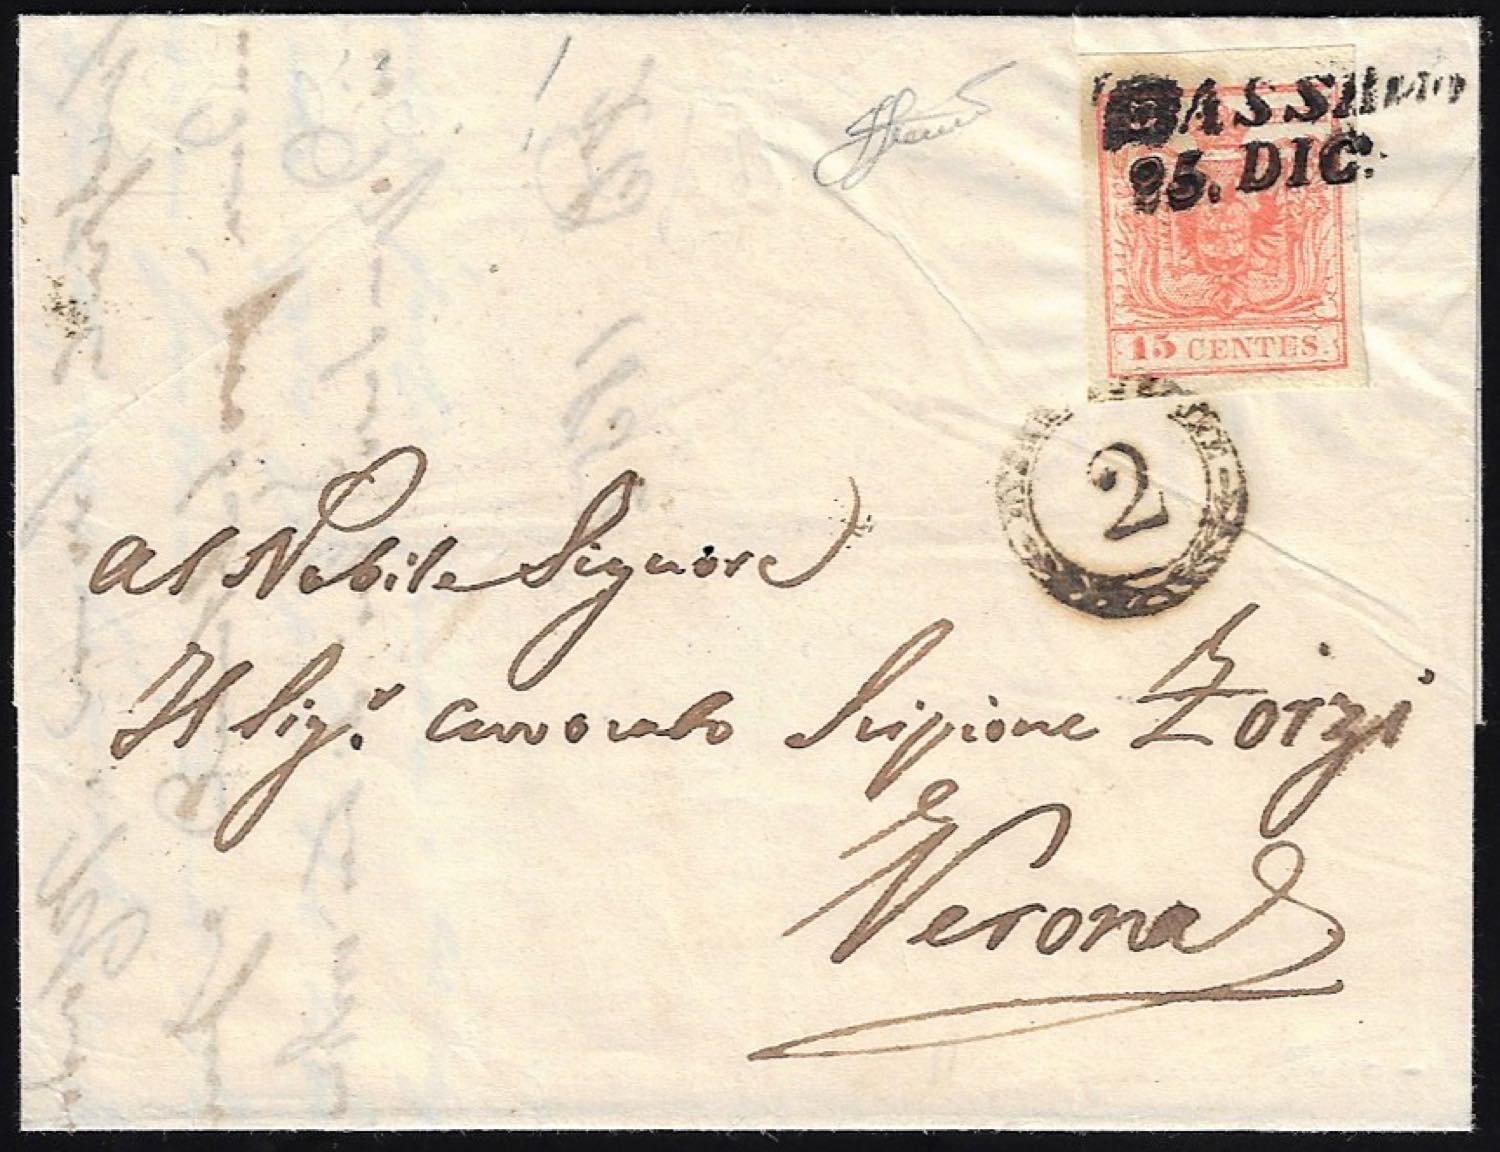 BASSANO
25. DIC.
15 CENTES.
2
Al Nobile Signore
Il Sig.r avvocato Scipione Zorzi
Verona